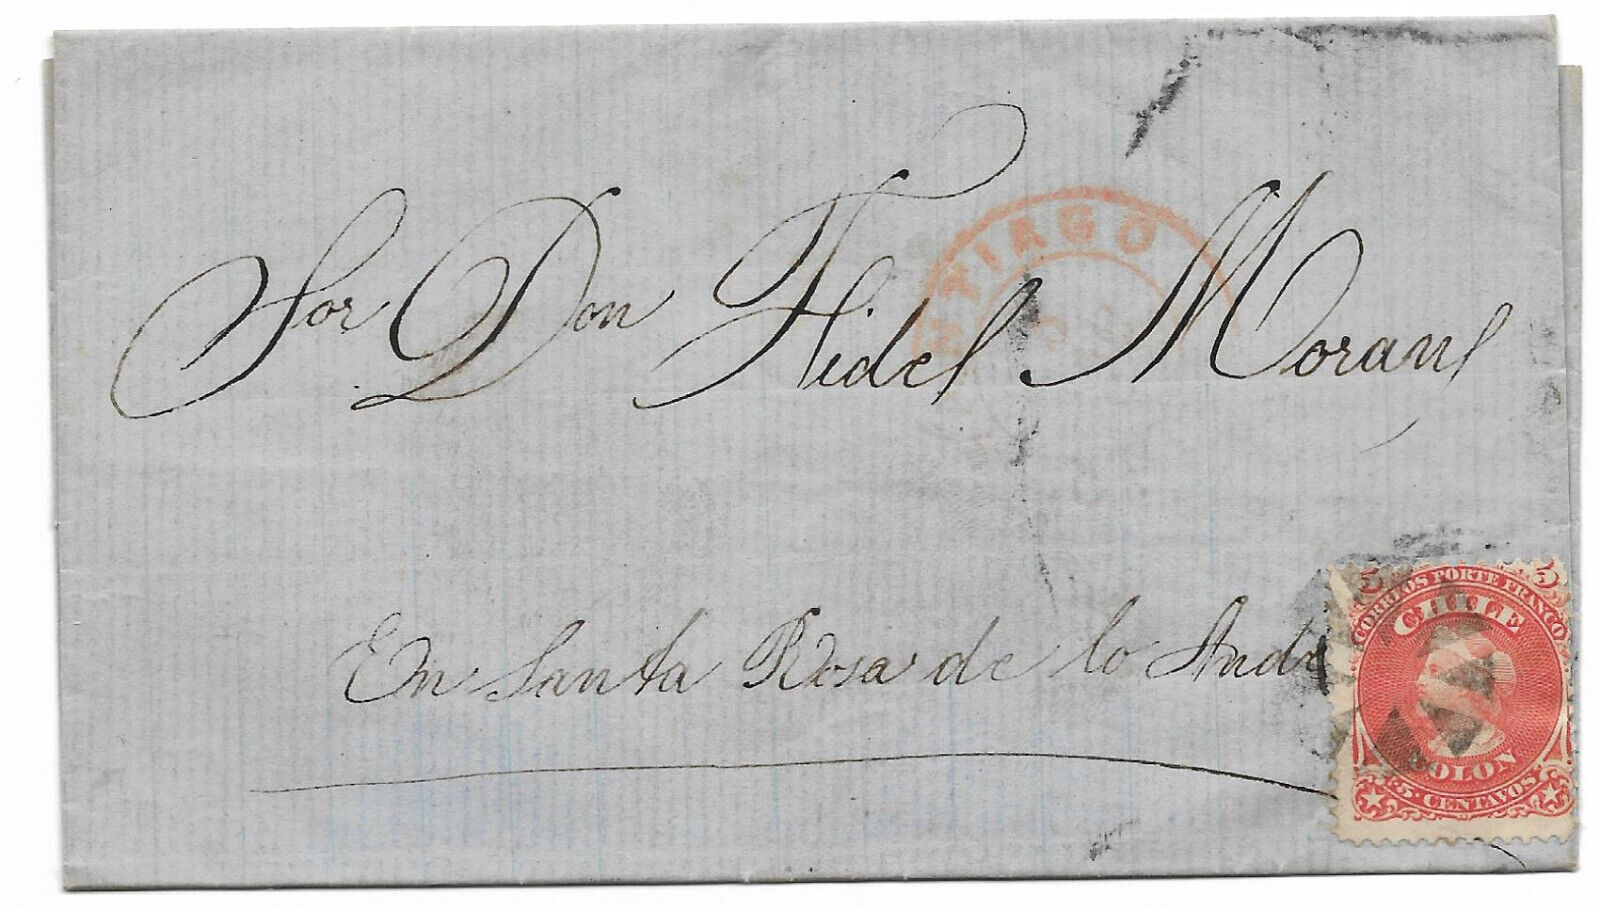 Sor Don Fidel Moran
NTIAGO
En Santa Rosa de lo Ande
5 5
CORREOS PORTE FRANCO
CHILE
COLON
5 CENTAVOS